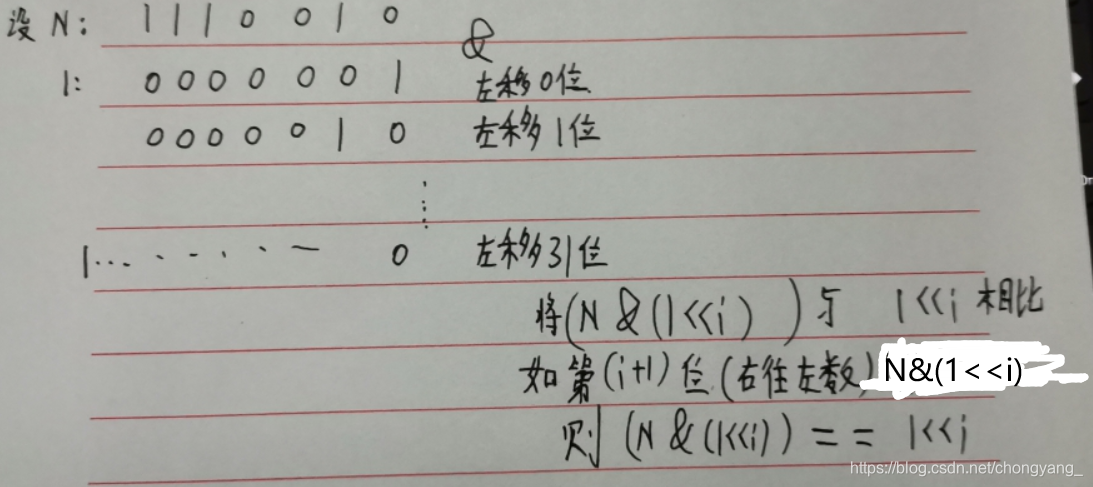 设 N: 1 1 1 0 0 1 0
&
1: 0 0 0 0 0 0 1 左移0位
0 0 0 0 0 1 0 左移1位
⋮
1... . - . . - 0 左移31位
将(N & (1<<i) ) 与 1<<i 相比
如第(i+1)位(右往左数) N&(1<<i)
则 (N & (1<<i)) == 1<<i
https://blog.csdn.net/chongyang_